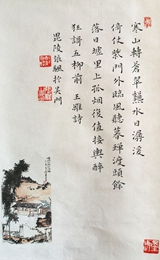 寒山轉蒼翠龝水日潺湲
倚仗柴門外臨風聽暮蟬渡頭餘
落日墟里上孤烟復值接輿醉
狂謌五柳前 王維詩
毘陵 於吳門